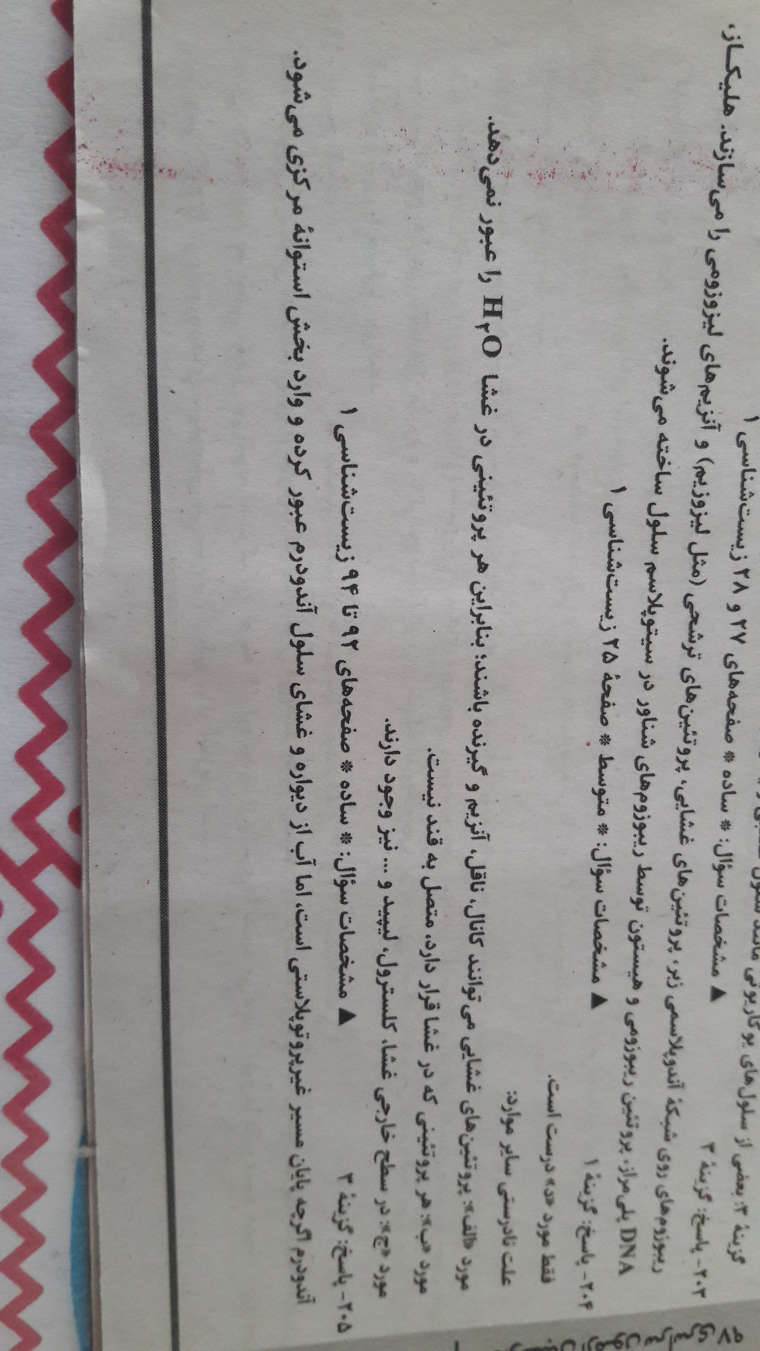 گزینهٔ ۳: بعضی از سلول‌های یوکاریوتی مانند سلول
۲۰۳- پاسخ: گزینهٔ ۳ ▲ مشخصات سؤال: * ساده * صفحه‌های ۲۷ و ۲۸ زیست‌شناسی ۱
ریبوزوم‌های روی شبکهٔ آندوپلاسمی زبر، پروتئین‌های غشایی، پروتئین‌های ترشحی (مثل لیزوزیم) و آنزیم‌های لیزوزومی را می‌سازند. هلیکاز،
DNA پلی‌مراز، پروتئین ریبوزومی و هیستون توسط ریبوزوم‌های شناور در سیتوپلاسم سلول ساخته می‌شوند.
۲۰۴- پاسخ: گزینهٔ ۱ ▲ مشخصات سؤال: * متوسط * صفحهٔ ۲۵ زیست‌شناسی ۱
فقط مورد «د» درست است.
علت نادرستی سایر موارد:
مورد «الف»: پروتئین‌های غشایی می‌توانند کانال، ناقل، آنزیم و گیرنده باشند؛ بنابراین هر پروتئینی در غشا H۲O را عبور نمی‌دهد.
مورد «ب»: هر پروتئینی که در غشا قرار دارد، متصل به قند نیست.
مورد «ج»: در سطح خارجی غشا، کلسترول، لیپید و ... نیز وجود دارند.
۲۰۵- پاسخ: گزینهٔ ۳ ▲ مشخصات سؤال: * ساده * صفحه‌های ۹۲ تا ۹۴ زیست‌شناسی ۱
آندودرم اگرچه پایان مسیر غیرپروتوپلاستی است، اما آب از دیواره و غشای سلول آندودرم عبور کرده و وارد بخش استوانهٔ مرکزی می‌شود.